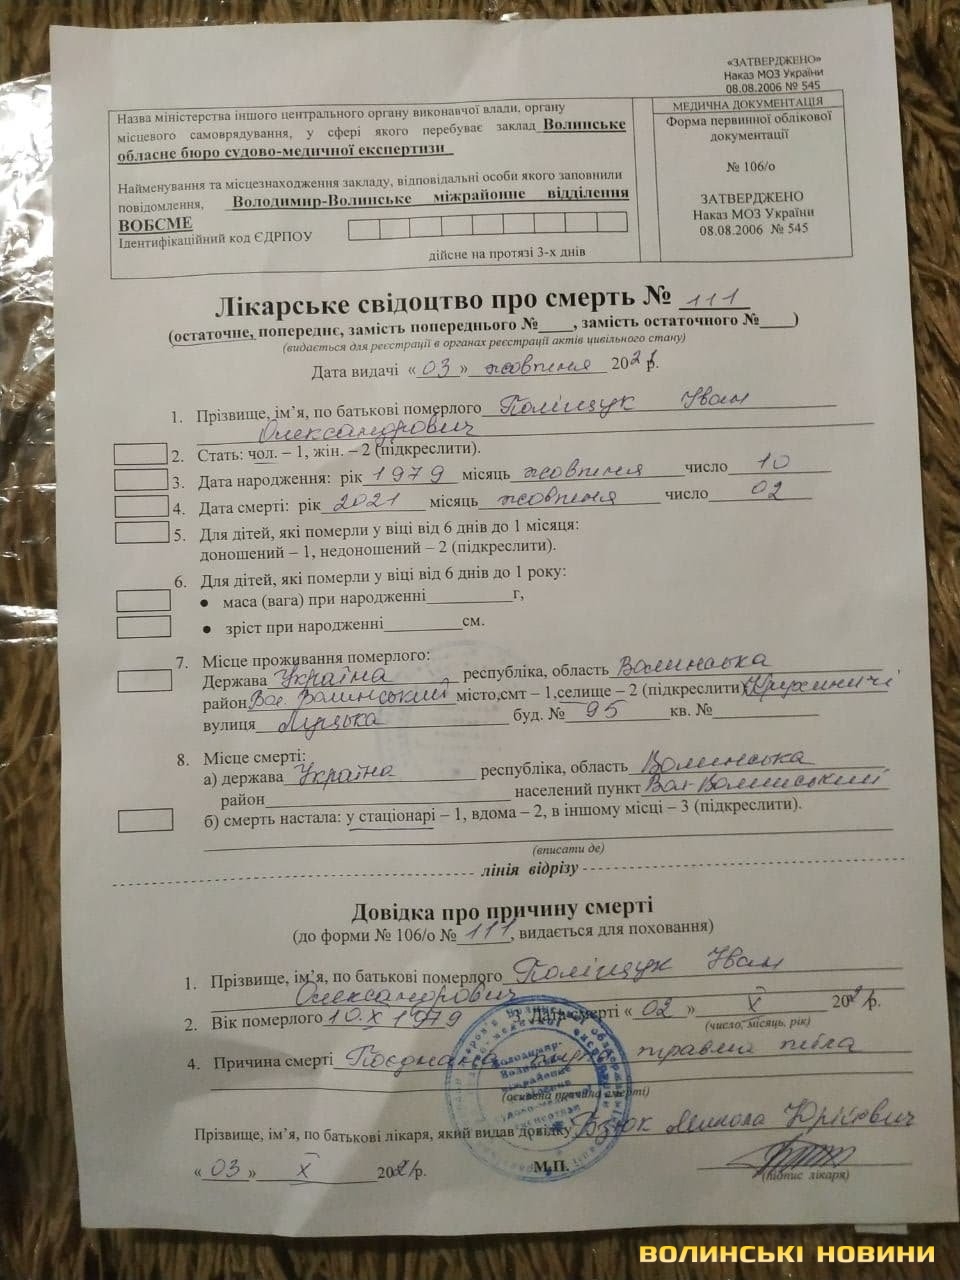 «ЗАТВЕРДЖЕНО»
Наказ МОЗ України
08.08.2006 № 545
Назва міністерства іншого центрального органу виконавчої влади, органу
місцевого самоврядування, у сфері якого перебуває заклад Волинське
обласне бюро судово-медичної експертизи
Найменування та місцезнаходження закладу, відповідальні особи якого заповнили
повідомлення, Володимир-Волинське міжрайонне відділення
ВОБСМЕ
Ідентифікаційний код ЄДРПОУ
дійсне на протязі 3-х днів
МЕДИЧНА ДОКУМЕНТАЦІЯ
Форма первинної облікової
документації
№ 106/о
ЗАТВЕРДЖЕНО
Наказ МОЗ України
08.08.2006 № 545
Лікарське свідоцтво про смерть № 111
(остаточне, попереднє, замість попереднього №____, замість остаточного №____)
(видається для реєстрації в органах реєстрації актів цивільного стану)
Дата видачі «03» жовтня 2021р.
1. Прізвище, ім’я, по батькові померлого Поліщук Іван
Олександрович
2. Стать: чол. – 1, жін. – 2 (підкреслити).
3. Дата народження: рік 1979 місяць жовтня число 10
4. Дата смерті: рік 2021 місяць жовтня число 02
5. Для дітей, які померли у віці від 6 днів до 1 місяця:
доношений – 1, недоношений – 2 (підкреслити).
6. Для дітей, які померли у віці від 6 днів до 1 року:
● маса (вага) при народженні__________г,
● зріст при народженні_________см.
7. Місце проживання померлого:
Держава Україна республіка, область Волинська
район Вол. Волинський місто,смт – 1,селище – 2 (підкреслити)
вулиця Луцька буд. № 95 кв. №
8. Місце смерті:
а) держава Україна республіка, область Волинська
район населений пункт Вол-Волинський
б) смерть настала: у стаціонарі – 1, вдома – 2, в іншому місці – 3 (підкреслити).
(вписати де)
лінія відрізу
Довідка про причину смерті
(до форми № 106/о № 111, видається для поховання)
1. Прізвище, ім’я, по батькові померлого Поліщук Іван
Олександрович
2. Вік померлого 10.X 1979 3. Дата смерті «02» X 2021р.
(число, місяць, рік)
4. Причина смерті Поєднана травма тіла
(основна причина смерті)
Прізвище, ім’я, по батькові лікаря, який видав довідку Микола Юрійович
«03» X 2021р. М.П.
(підпис лікаря)
ВОЛИНСЬКІ НОВИНИ